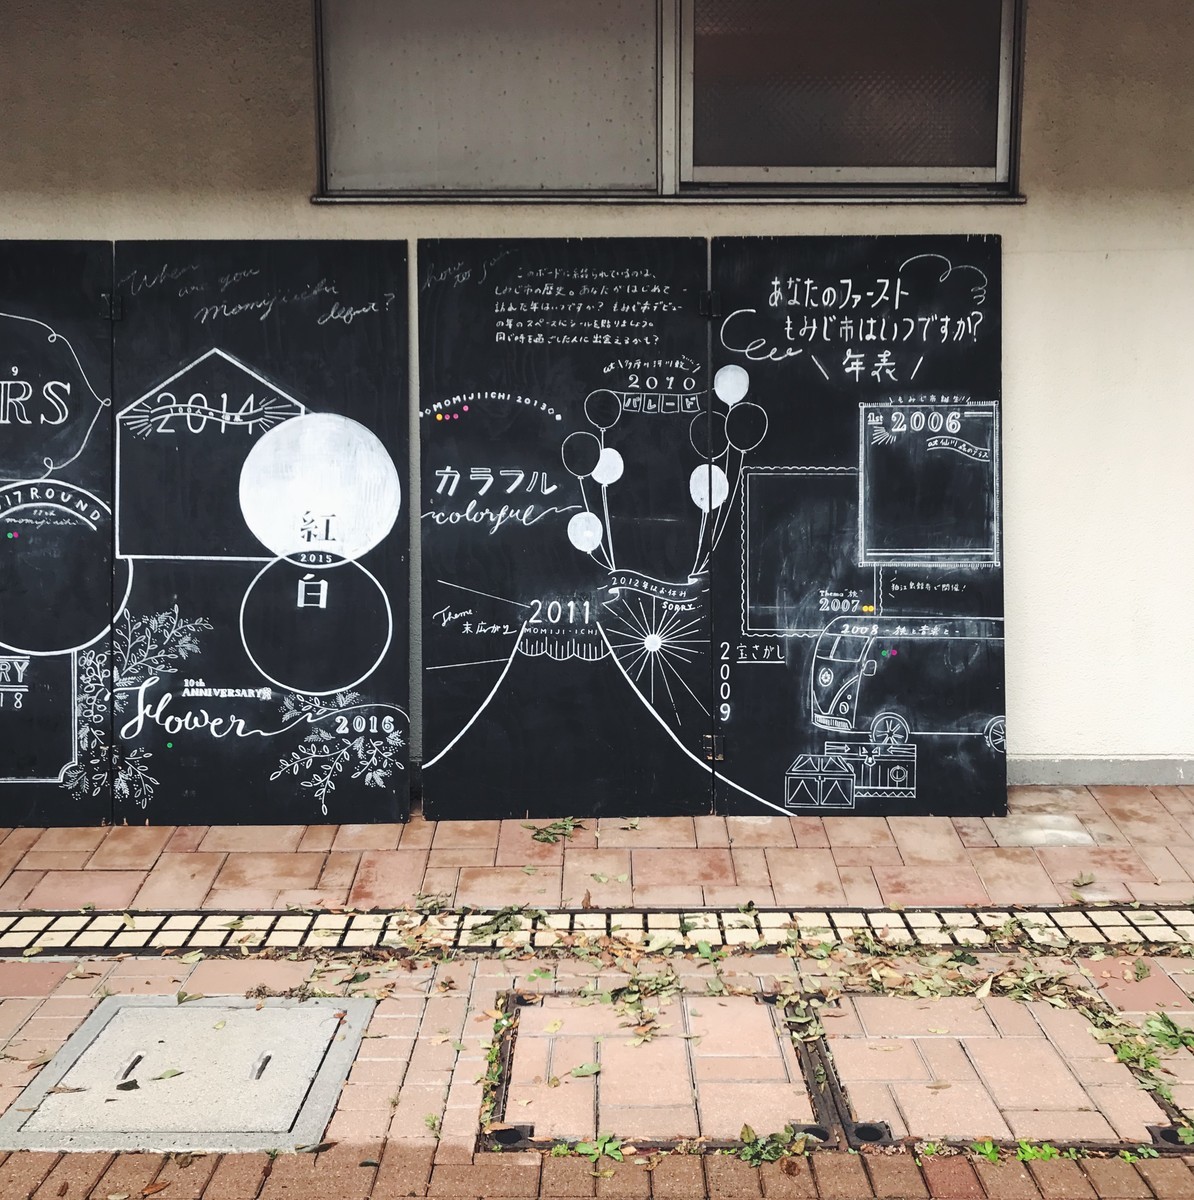 あなたのファースト
もみじ市はいつですか?
年表
もみじ市誕生!!
1st 2006
狛江児島で開催!
Theme 旅
2007
2008 -旅と音楽と-
2009
宝さがし
how to join
このボードに綴られているのは、
もみじ市の歴史。あなたがはじめて
訪れた年はいつですか? もみじ市デビュー
の年のスペースにシールを貼りましょう。
同じ時を過ごした人に出会えるかも?
at 多摩川河川敷
2010
パレード
MOMIJIICHI 2013
カラフル
colorful
2012年はお休み
SORRY...
Theme
末広がり
2011
MOMIJI-ICHI
When
are you
momijiichi
debut?
2014
紅
2015
白
10th
ANNIVERSARY
Flower
2016
RS
17 ROUND
momijiichi
RY
18